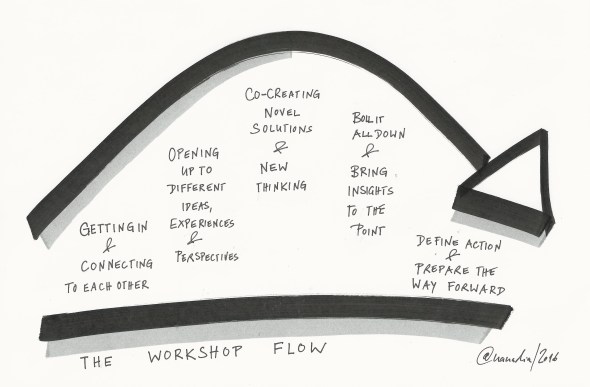 GETTING IN
&
CONNECTING
TO EACH OTHER
OPENING
UP TO
DIFFERENT
IDEAS,
EXPERIENCES
&
PERSPECTIVES
CO-CREATING
NOVEL
SOLUTIONS
&
NEW
THINKING
BOIL IT
ALL DOWN
&
BRING
INSIGHTS
TO THE
POINT
DEFINE ACTION
&
PREPARE THE
WAY FORWARD
THE WORKSHOP FLOW